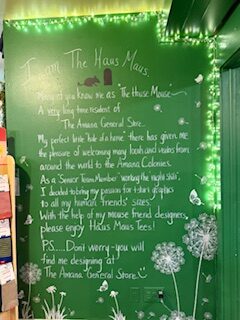 I am The Haus Maus.
Many of you know me as "The House Mouse"
A very long time resident of
The Amana General Store.
My perfect little "hole of a home" there has given me
the pleasure of welcoming many locals and visitors from
around the world to the Amana Colonies.
As a "Senior Team Member" "working the night shift",
I decided to bring my passion for t-shirt graphics
to all my human friends' sizes.
With the help of my mouse friend designers,
please enjoy Haus Maus tees!
P.S.... Don't worry - you will
find me designing at
The Amana General Store.